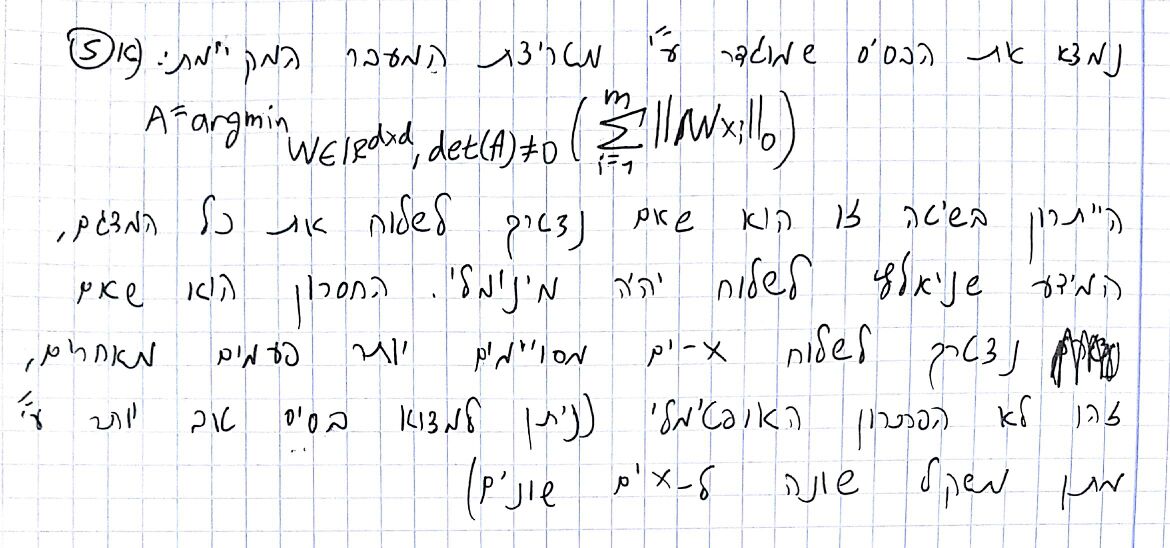 5) א) נמצא את הבסיס שמוגדר ע"י מטריצת המעבר המקיימת:
A = argmin W∈ℝ^{d×d}, det(A)≠0 ( ∑_{i=1}^{m} ||Wx_i||_0 )
היתרון בשיטה זו הוא שאם נצטרך לשלוח את כל המדגם,
המידע שניאלץ לשלוח יהיה מינימלי. החסרון הוא שאם
נצטרך לשלוח x-ים מסויימים יותר פעמים מאחרים,
זהו לא הפתרון האופטימלי (ניתן למצוא בסיס טוב יותר ע"י
מתן משקל שונה ל-x-ים שונים)